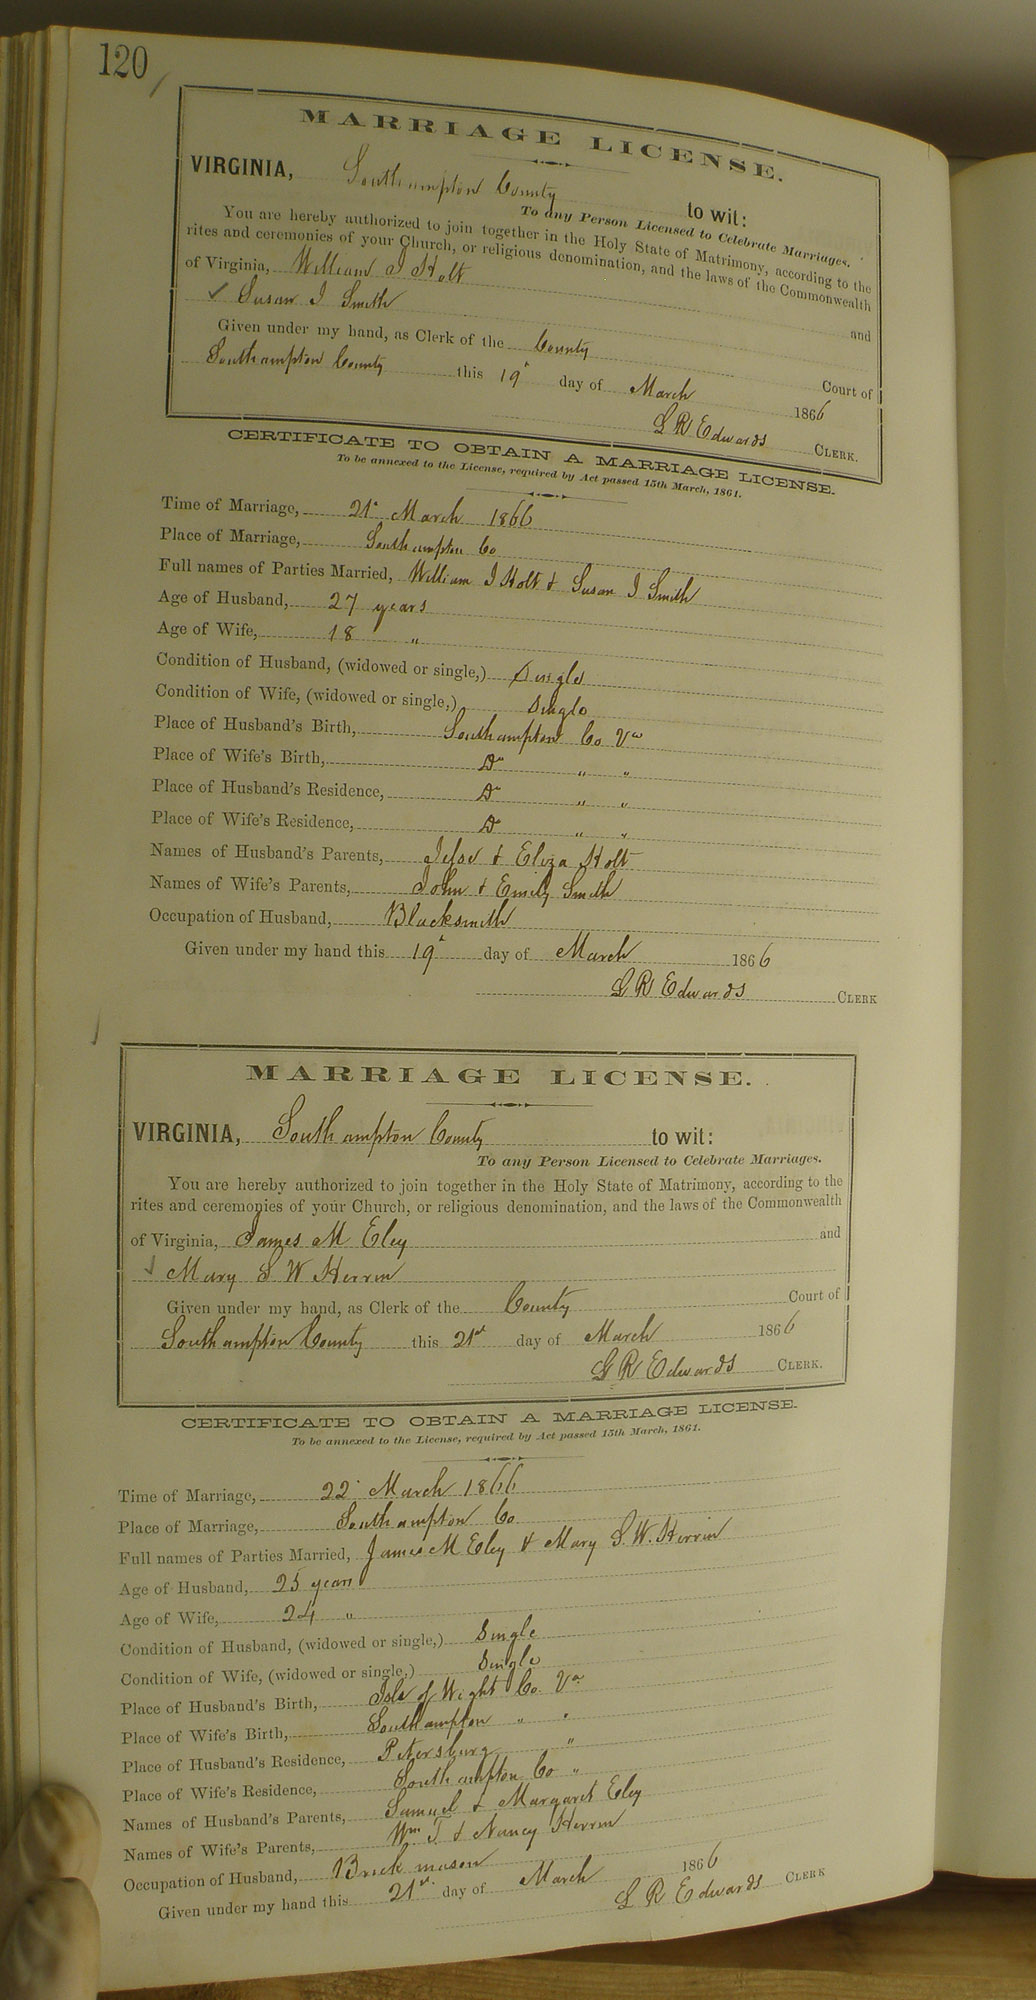 120
MARRIAGE LICENSE.
VIRGINIA, Southampton County to wit:
To any Person Licensed to Celebrate Marriages.
You are hereby authorized to join together in the Holy State of Matrimony, according to the
rites and ceremonies of your Church, or religious denomination, and the laws of the Commonwealth
of Virginia, William J Holt and
Susan J Smith
Given under my hand, as Clerk of the County Court of
Southampton County this 19" day of March 1866
L R Edwards CLERK.
CERTIFICATE TO OBTAIN A MARRIAGE LICENSE.
To be annexed to the License, required by Act passed 15th March, 1861.
Time of Marriage, 21" March 1866
Place of Marriage, Southampton Co
Full names of Parties Married, William J Holt & Susan J Smith
Age of Husband, 27 years
Age of Wife, 18 "
Condition of Husband, (widowed or single,) Single
Condition of Wife, (widowed or single,) Single
Place of Husband's Birth, Southampton Co Va
Place of Wife's Birth, Do " "
Place of Husband's Residence, Do " "
Place of Wife's Residence, Do " "
Names of Husband's Parents, Jesse & Eliza Holt
Names of Wife's Parents, John & Emily Smith
Occupation of Husband, Blacksmith
Given under my hand this 19" day of March 1866
L R Edwards CLERK
MARRIAGE LICENSE.
VIRGINIA, Southampton County to wit:
To any Person Licensed to Celebrate Marriages.
You are hereby authorized to join together in the Holy State of Matrimony, according to the
rites and ceremonies of your Church, or religious denomination, and the laws of the Commonwealth
of Virginia, James M Eley and
Mary S W Herrin
Given under my hand, as Clerk of the County Court of
Southampton County this 21st day of March 1866
L R Edwards CLERK.
CERTIFICATE TO OBTAIN A MARRIAGE LICENSE.
To be annexed to the License, required by Act passed 15th March, 1861.
Time of Marriage, 22" March 1866
Place of Marriage, Southampton Co
Full names of Parties Married, James M Eley & Mary S. W. Herrin
Age of Husband, 25 years
Age of Wife, 24 "
Condition of Husband, (widowed or single,) Single
Condition of Wife, (widowed or single,) Single
Place of Husband's Birth, Isle of Wight Co. Va
Place of Wife's Birth, Southampton " "
Place of Husband's Residence, Petersburg "
Place of Wife's Residence, Southampton Co "
Names of Husband's Parents, Samuel & Margaret Eley
Names of Wife's Parents, Wm T & Nancy Herrin
Occupation of Husband, Brick mason
Given under my hand this 21st day of March 1866
L R Edwards CLERK